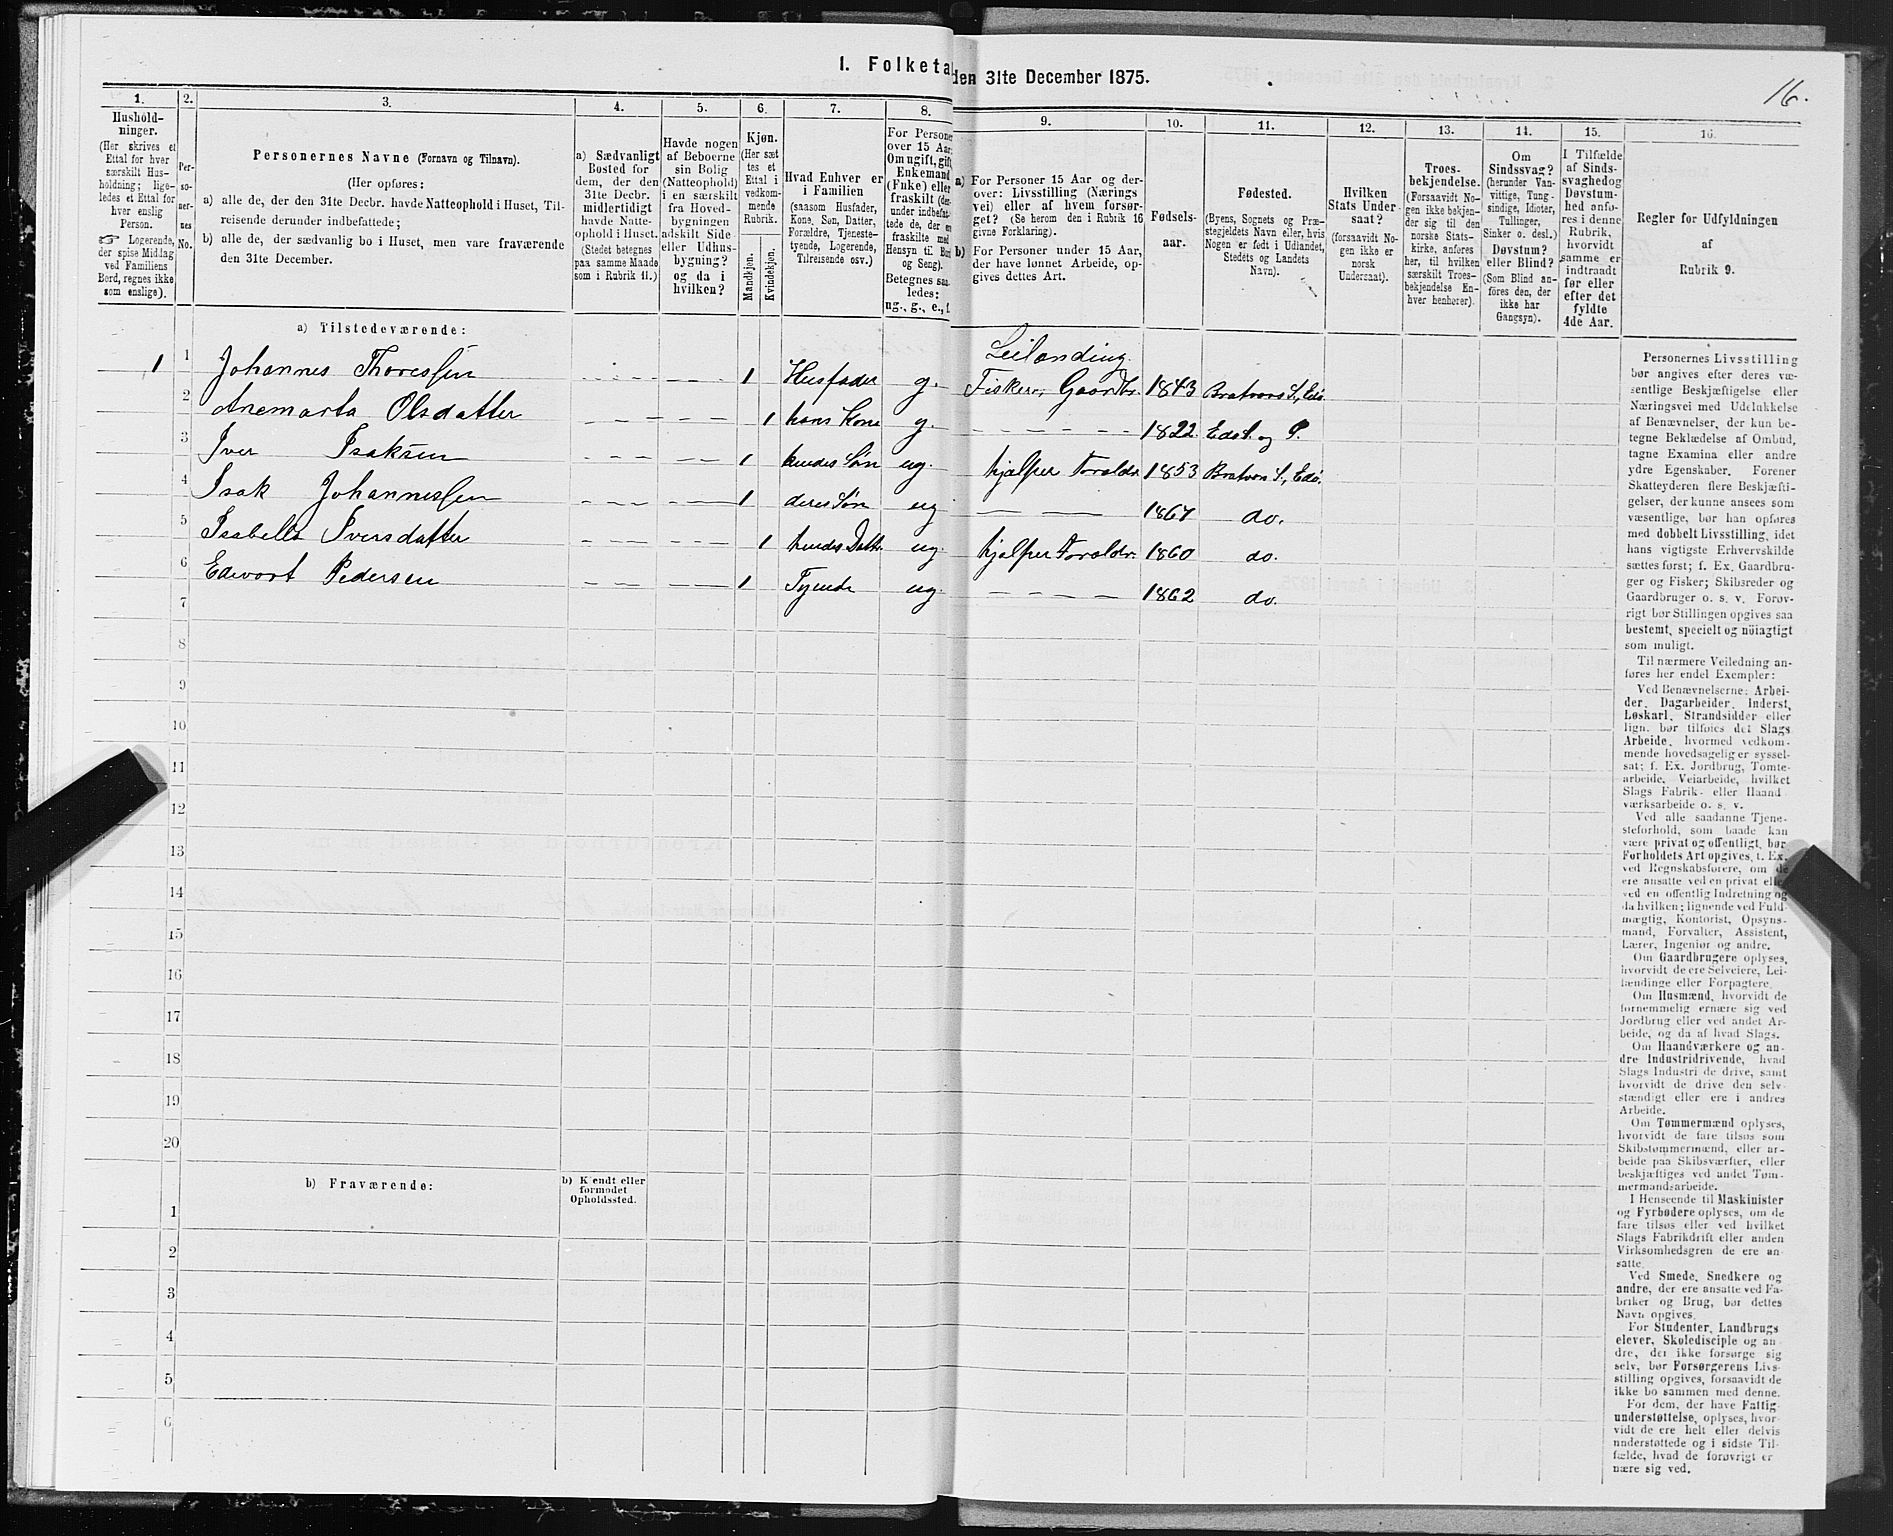 1. Folketal den 31te December 1875.
16.
1.
Hushold-
ninger.
(Her skrives et
Ettal for hver
særskilt Hus-
holdning; lige-
ledes et Ettal for
hver enslig
Person.
☞ Logerende,
der spise Middag
ved Familiens
Bord, regnes ikke
som enslige).
2.
Per-
so-
ner-
nes
No.
3.
Personernes Navne (Fornavn og Tilnavn).
(Her opføres:
a) alle de, der den 31te Decbr. havde Natteophold i Huset, Til-
reisende derunder indbefattede;
b) alle de, der sædvanlig bo i Huset, men vare fraværende
den 31te December.
4.
a) Sædvanligt
Bosted for
dem, der den
31te Decbr.
midlertidigt
havde Natte-
ophold i Huset.
(Stedet betegnes
paa samme Maade
som i Rubrik 11.)
5.
Havde nogen
af Beboerne
sin Bolig
(Natteophold)
i en særskilt
fra Hoved-
bygningen
adskilt Side-
eller Udhus-
bygning?
og da i
hvilken?
6.
Kjøn.
(Her sæt
tes et
Ettal i
vedkom-
mende
Rubrik.
Mandkjøn.
Kvindekjøn.
7.
Hvad Enhver er
i Familien
(saasom Husfader,
Kone, Søn, Datter,
Forældre, Tjeneste-
tyende, Logerende,
Tilreisende osv.)
8.
For Personer
over 15 Aar:
Om ugift, gift,
Enkemand
(Enke) eller
fraskilt (der-
under indbefat-
tede de, der er
fraskilte med
Hensyn til Bord
og Seng).
Betegnes saa-
ledes:
ug., g., e., f.
9.
a) For Personer 15 Aar og der-
over: Livsstilling (Nærings
vei) eller af hvem forsør-
get? (Se herom den i Rubrik 16
givne Forklaring).
b) For Personer under 15 Aar,
der have lønnet Arbeide, op-
gives dettes Art.
10.
Fødsels-
aar.
11.
Fødested.
(Byens, Sognets og Præ-
stegjeldets Navn eller, hvis
Nogen er født i Udlandet,
Stedets og Landets
Navn).
12.
Hvilken
Stats Under
saat?
(forsaavidt No-
gen ikke er
norsk
Undersaat).
13.
Troes-
bekjendelse.
(Forsaavidt No-
gen ikke bekjen-
der sig til den
norske Stats-
kirke, anføres
her, til hvilken
særskilt Troes-
bekjendelse En-
hver henhører).
14.
Om
Sindssvag?
(herunder Van-
vittige, Tung-
sindige, Idioter,
Tullinger,
Sinker o. desl.)
Døvstum?
eller Blind?
(Som Blind an-
føres den, der
ikke har
Gangsyn).
15.
I Tilfælde
af Sinds-
svaghed og
Døvstum-
hed anfø-
res i denne
Rubrik,
hvorvidt
samme er
indtraadt
før eller
efter det
fyldte
4de Aar.
16.
Regler for Udfyldningen
af
Rubrik 9.
a) Tilstedeværende:
Leilænding.
1 1 Johannes Thoressen 1 Husfader g. Fisker, Gaardbr. 1843 Bratvær S., Edø.
2 Anemarta Olsdatter 1 hans Kone g. 1822 Edø S. og P.
3 Iver Isaksen 1 hendes Søn ug. hjælper Foraldr. 1853 Bratvær S., Edø.
4 Isak Johannessen 1 deres Søn ug 1867 do.
5 Isabella Iversdatter 1 hendes Datt. ug. hjælper Foraldr. 1860 do.
6 Edevart Pedersen 1 Tyende ug. 1862 do.
7
8
9
10
11
12
13
14
15
16
17
18
19
20
b) Fraværende:
b) Kjendt eller
formodet
Opholdssted.
1
2
3
4
5
6
Personernes Livsstilling
bør angives efter deres væ-
sentlige Beskjæftigelse eller
Næringsvei med Udelukkelse
af Benævnelser, der kun be-
tegne Beklædelse af Ombud,
tagne Examina eller andre
ydre Egenskaber. Forener
Skatteyderen flere Beskjæfti-
gelser, der kunne ansees som
væsentlige, bør han opføres
med dobbelt Livsstilling, idet
hans vigtigste Erhvervskilde
sættes først; f. Ex. Gaardbru-
ger og Fisker; Skibsreder og
Gaardbruger o. s. v. Forøv-
rigt bør Stillingen opgives saa
bestemt, specielt og nöiagtigt
som muligt.
Til nærmere Veiledning an-
føres her endel Exempler:
Ved Benævnelserne: Arbei-
der, Dagarbeider, Inderst,
Løskarl, Strandsidder eller
lign. bør tilføies det Slags
Arbeide, hvormed vedkom-
mende hovedsagelig er syssel-
sat; f. Ex. Jordbrug, Tomte-
arbeide, Veiarbeide, hvilket
Slags Fabrik- eller Haand
værksarbeide o. s. v.
Ved alle saadanne Tjene-
steforhold, som baade kan
være privat og offentligt, bør
Forholdets Art opgives, f. Ex.
ved Regnskabsførere, om de
ere ansatte ved en privat eller
ved en offentlig Indretning og
da hvilken; lignende ved Fuld-
mægtig, Kontorist, Opsyns-
mand, Forvalter, Assistent,
Lærer, Ingeniør og andre.
Om Gaardbrugere oplyses,
hvorvidt de ere Selveiere, Lei-
lændinge eller Forpagtere.
Om Husmænd, hvorvidt de
fornemmelig ernære sig ved
Jordbrug eller ved andet Ar-
beide, og da af hvad Slags.
Om Haandværkere og an-
dre Industridrivende, hvad
Slags Industri de drive, samt
hvorvidt de drive den selv-
stændigt eller ere i andres
Arbeide.
Om Tømmermænd oplyses,
hvorvidt de fare tilsøs som
Skibstømmermænd, eller ar-
beide paa Skibsværfter, eller
beskjæftiges ved andet Tøm-
mermandsarbeide.
I Henseende til Maskinister
og Fyrbødere oplyses, om de
fare tilsøs eller ved hvilket
Slags Fabrikdrift eller anden
Virksomhedsgren de ere an-
satte.
Ved Smede, Snedkere og
andre, der ere ansatte ved Fa-
briker og Brug, bør dettes
Navn opgives.
For Studenter, Landbrugs
elever, Skoledisciple og an-
dre, der ikke forsørge sig
selv, bør Forsørgerens Livs-
stilling opgives, forsaavidt de
ikke bo sammen med denne.
For dem, der have Fattig-
understøttelse, oplyses, hvor-
vidt de ere helt eller delvis
understøttede og i sidste Til-
fælde, hvad de forøvrigt er
nære sig ved.